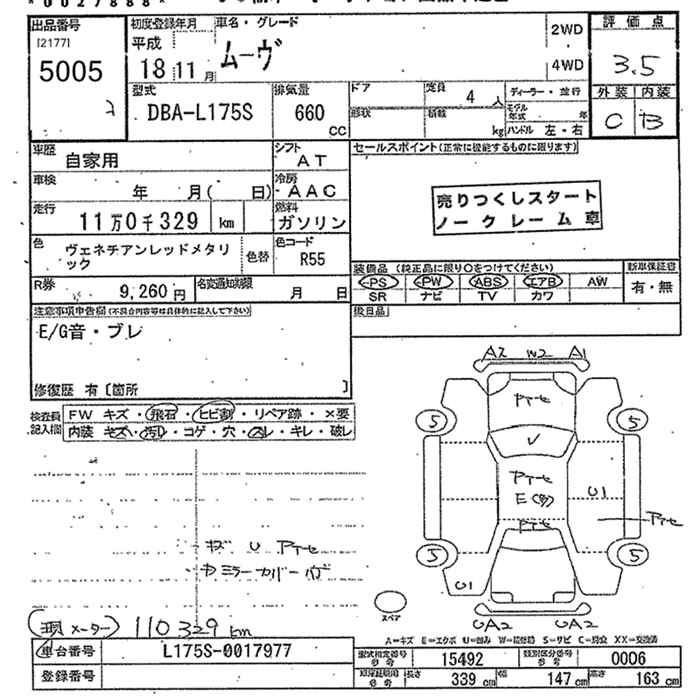 *0027888*
出品番号 初度登録年月 車名・グレード 2WD 評価点
[2177] 平成 ムーヴ
5005 18 11月 4WD 3.5
型式 排気量 ドア 定員 4人 ディーラー・並行 外装 内装
2 DBA-L175S 660 CC 形状 積載 kg モデル年式 年 C B
ハンドル 左・右
車歴 自家用 シフト AT セールスポイント(正常に機能するものに限ります)
車検 年 月( 日) 冷房 AAC
走行 11万0千329 km 燃料 ガソリン 売りつくしスタート
ノークレーム車
色 ヴェネチアンレッドメタリック 色替 色コード R55
装備品 (純正品に限り○をつけてください) 新車保証書
PS PW ABS エアB AW 有・無
SR ナビ TV カワ
R券 9,260円 名変通知期限 月 日
注意事項申告欄(不具合内容等は具体的に記入して下さい) 後日品
E/G音・ブレ
修復歴 有[箇所 ]
検査員記入欄 FW キズ・飛石・ヒビ割・リペア跡・×要
内装 キズ・汚れ・コゲ・穴・スレ・キレ・破レ
A2 W2 A1
アテセ
5 5
アテセ
U1
アテセ
アテセ
5 5
U1
スペア
UA2 UA2
キズ U アテセ
現メーター 110329km
A=キズ E=エクボ U=凹み W=補修跡 S=サビ C=腐食 XX=交換済
車台番号 L175S-0017977 型式指定番号 参考 15492 類別区分番号 参考 0006
登録番号 長さ 339cm 幅 147cm 高さ 163cm